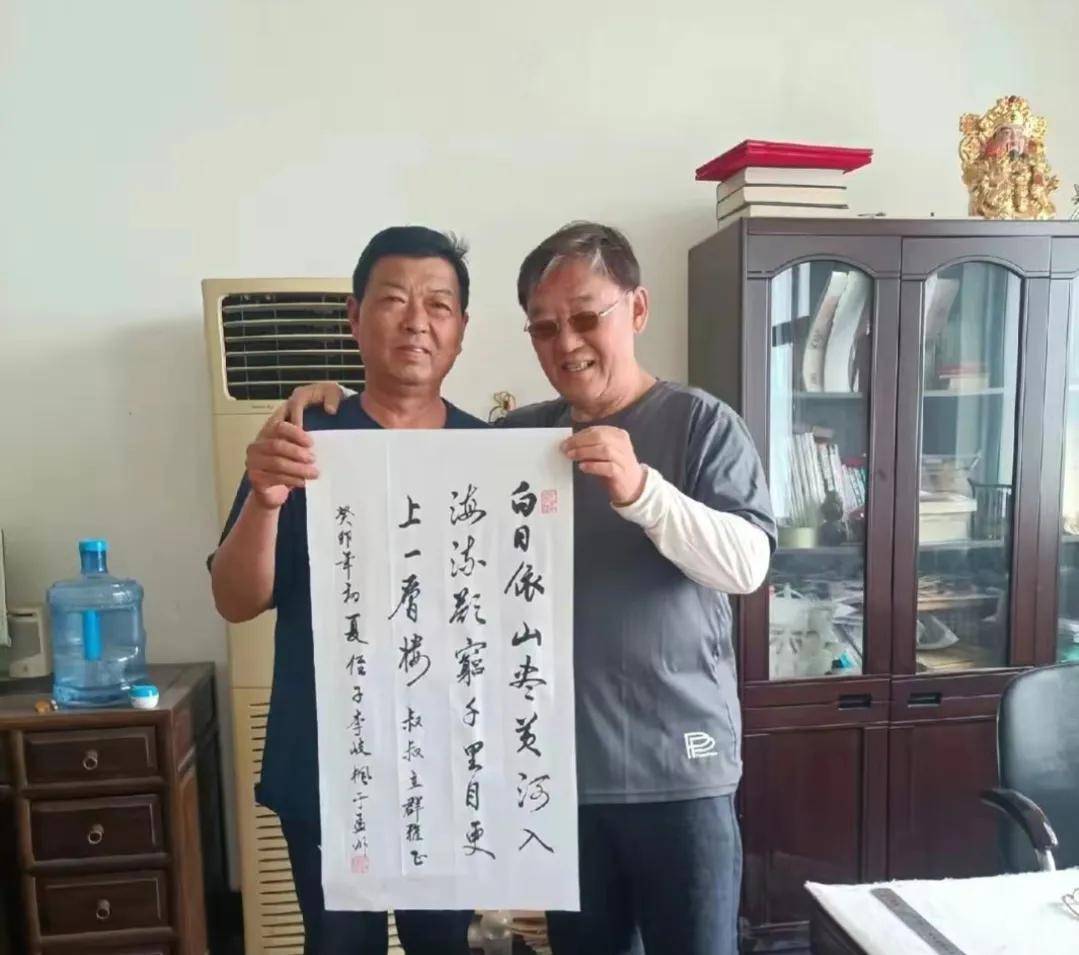 白日依山尽黄河入
海流欲窮千里目更
上一層楼 叔叔立群雅正
癸卯年初夏侄子李峻楓于孟州